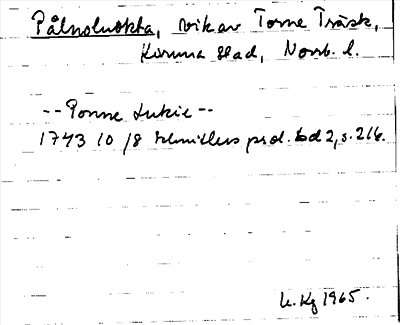 Pålnoluokta, vik av Torne Träsk,
Kiruna stad, Norrb. l.
-- Porme Lukie --
1743 10/8 Schnitlers prot. bd 2, s. 216.
U. Kg 1965.